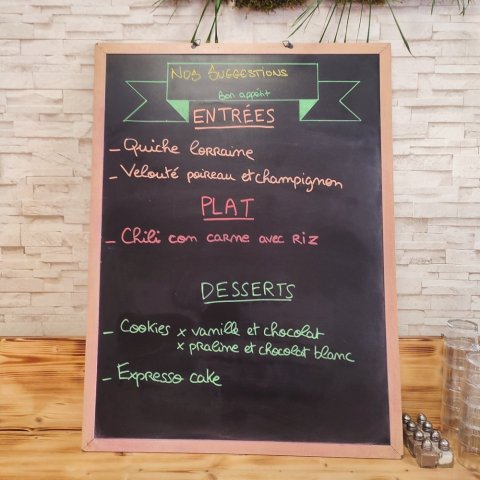 Nos Suggestions
Bon appétit
ENTRÉES
- Quiche lorraine
- Velouté poireau et champignon
PLAT
- Chili con carne avec Riz
DESSERTS
- Cookies x vanille et chocolat
x praline et chocolat blanc
- Expresso cake